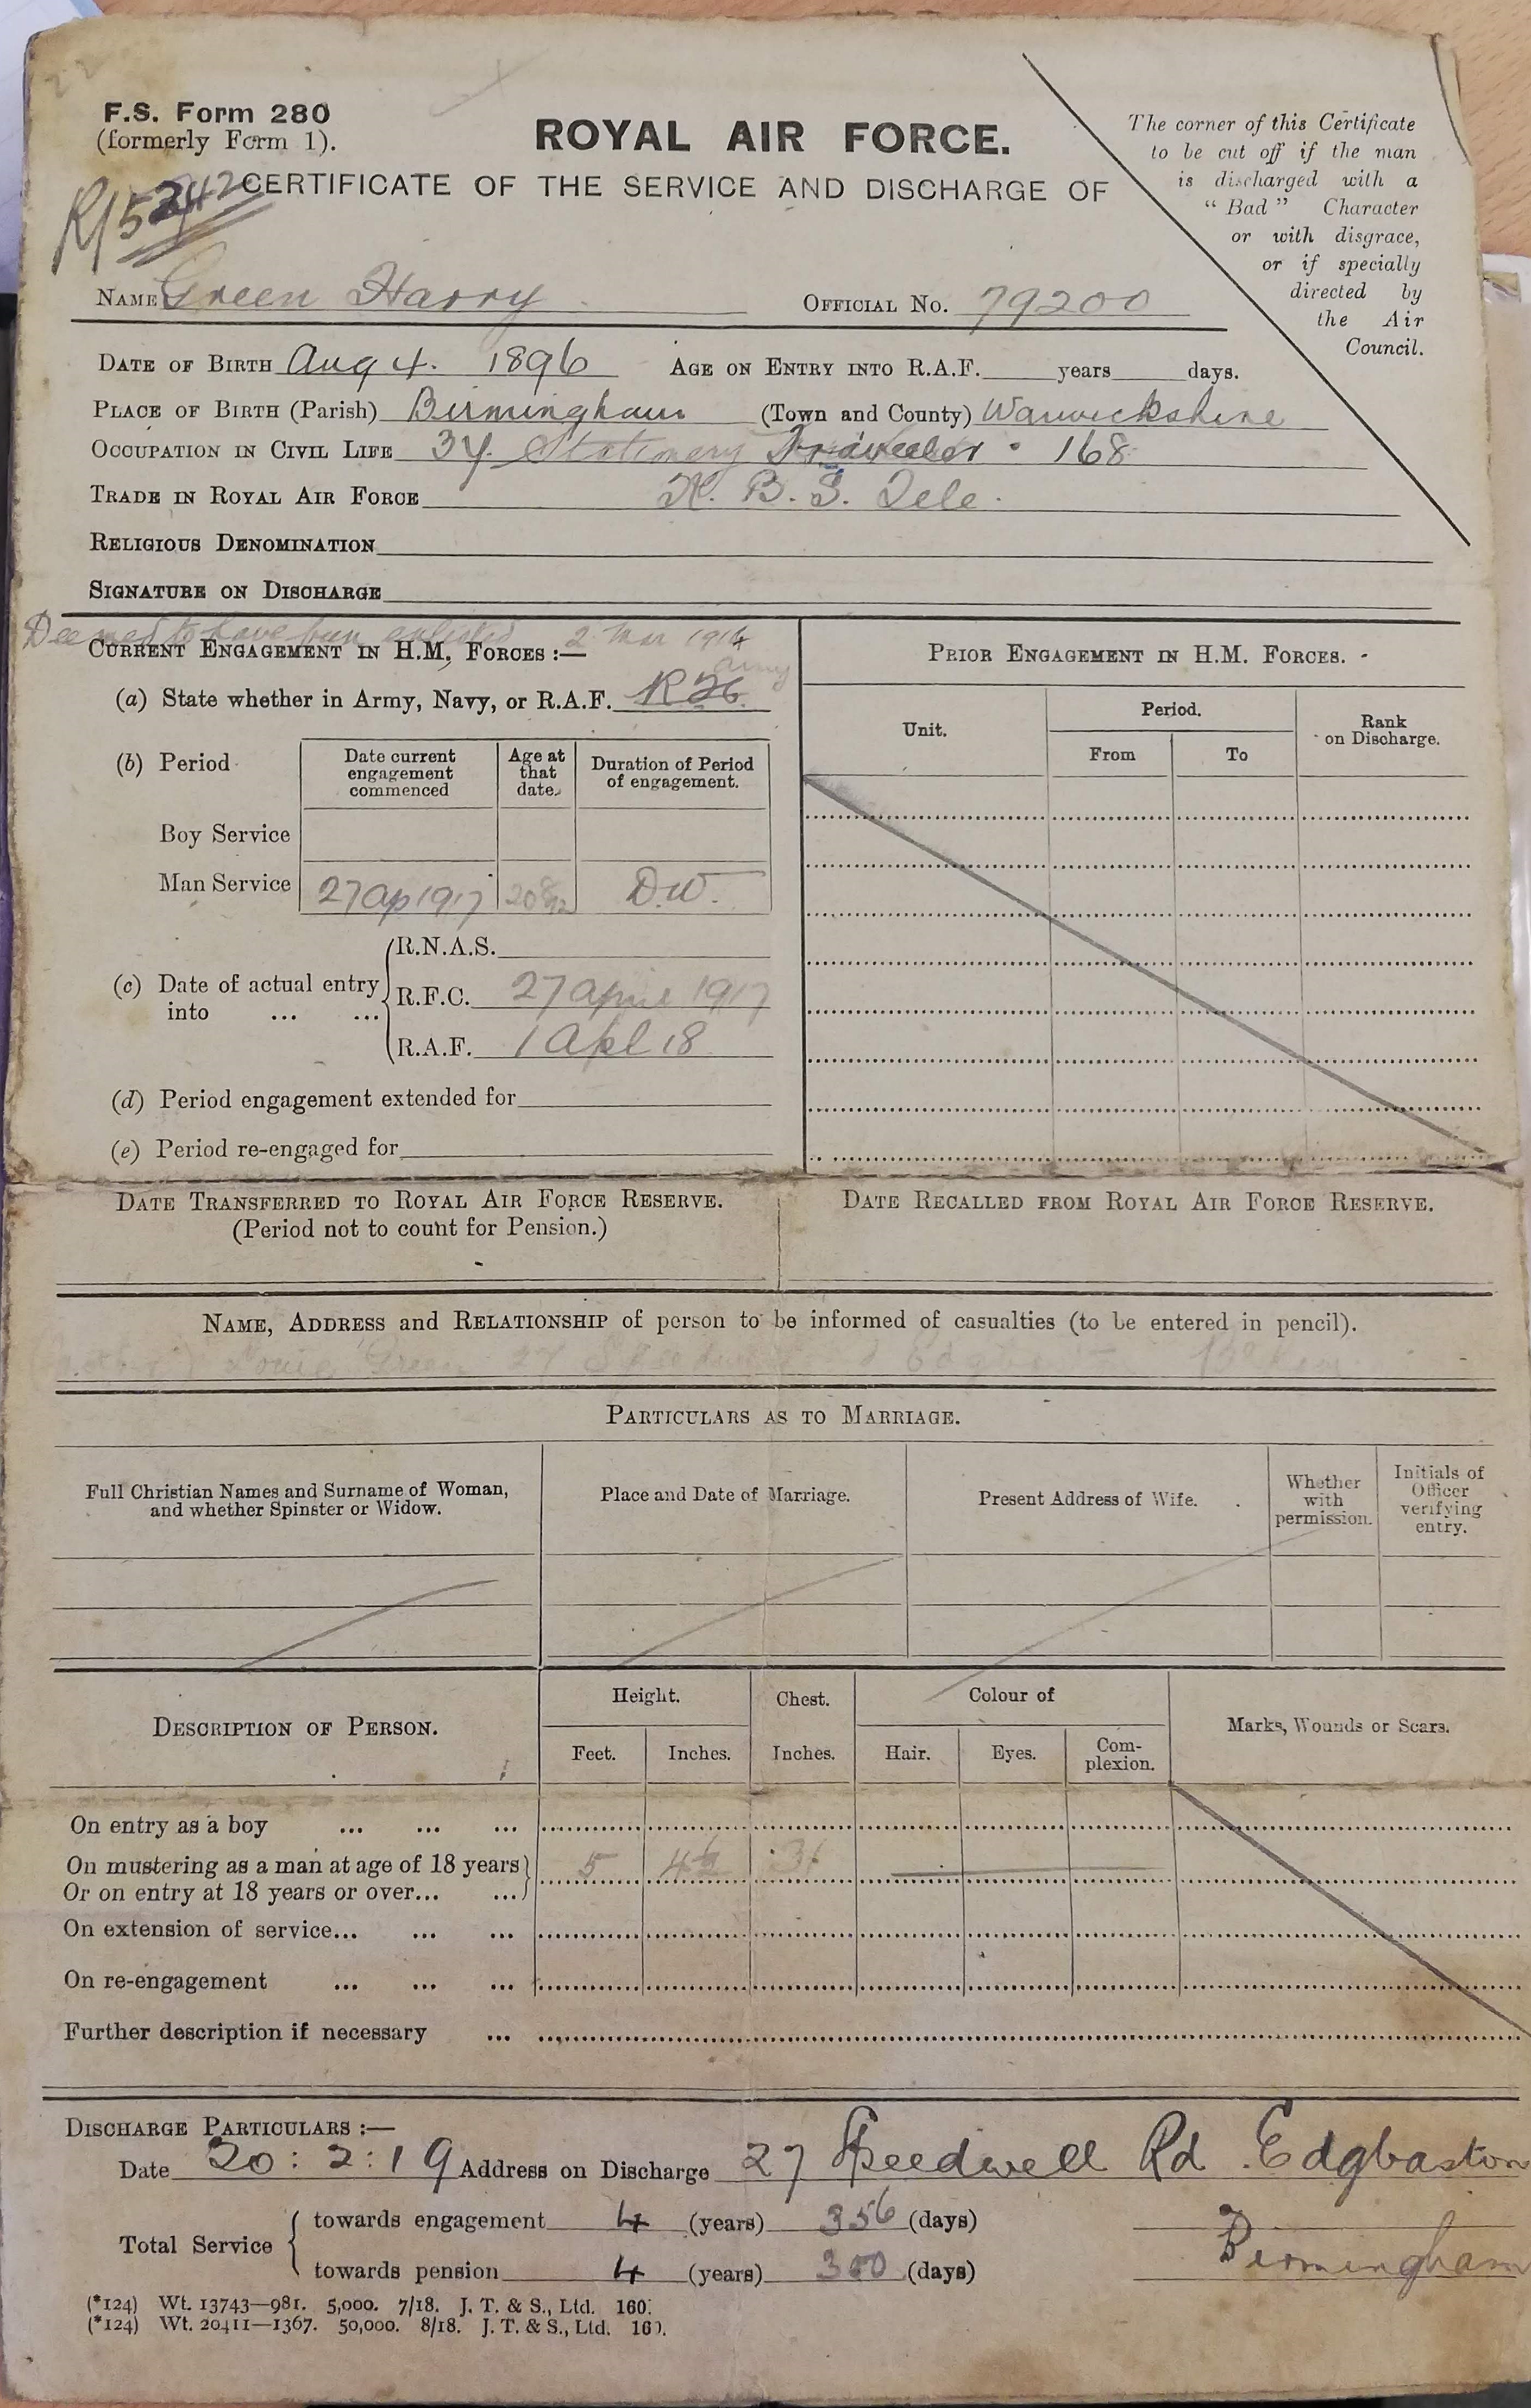 F.S. Form 280
(formerly Form 1).
ROYAL AIR FORCE.
CERTIFICATE OF THE SERVICE AND DISCHARGE OF
The corner of this Certificate
to be cut off if the man
is discharged with a
"Bad" Character
or with disgrace,
or if specially
directed by
the Air
Council.
NAME Green Harry OFFICIAL No. 79200
DATE OF BIRTH Aug 4. 1896 AGE ON ENTRY INTO R.A.F. years days.
PLACE OF BIRTH (Parish) Birmingham (Town and County) Warwickshire
OCCUPATION IN CIVIL LIFE 34. Stationery Traveller 168
TRADE IN ROYAL AIR FORCE B. S. Tele.
RELIGIOUS DENOMINATION
SIGNATURE ON DISCHARGE
Deemed to have been enlisted 2 Mar 1914
CURRENT ENGAGEMENT IN H.M. FORCES :—
Army
(a) State whether in Army, Navy, or R.A.F.
(b) Period
Date current engagement commenced
Age at that date.
Duration of Period of engagement.
Boy Service
Man Service 27 Ap 1917 D.W.
(c) Date of actual entry into ... ...
R.N.A.S.
R.F.C. 27 April 1917
R.A.F. 1 Apl 18
(d) Period engagement extended for
(e) Period re-engaged for
PRIOR ENGAGEMENT IN H.M. FORCES.
Unit.
Period.
From
To
Rank on Discharge.
DATE TRANSFERRED TO ROYAL AIR FORCE RESERVE.
(Period not to count for Pension.)
DATE RECALLED FROM ROYAL AIR FORCE RESERVE.
NAME, ADDRESS and RELATIONSHIP of person to be informed of casualties (to be entered in pencil).
Louie Green 27
PARTICULARS AS TO MARRIAGE.
Full Christian Names and Surname of Woman,
and whether Spinster or Widow.
Place and Date of Marriage.
Present Address of Wife.
Whether with permission.
Initials of Officer verifying entry.
DESCRIPTION OF PERSON.
Height.
Feet.
Inches.
Chest.
Inches.
Colour of
Hair.
Eyes.
Com-
plexion.
Marks, Wounds or Scars.
On entry as a boy ... ... ...
On mustering as a man at age of 18 years
Or on entry at 18 years or over... ...
5 4½ 31
On extension of service... ... ...
On re-engagement ... ... ...
Further description if necessary ...
DISCHARGE PARTICULARS :—
Date 20:2:19 Address on Discharge 27 Speedwell Rd Edgbaston
Birmingham
Total Service
towards engagement 4 (years) 356 (days)
towards pension 4 (years) 300 (days)
(*124) Wt. 13743—981. 5,000. 7/18. J. T. & S., Ltd. 160.
(*124) Wt. 20411—1367. 50,000. 8/18. J. T. & S., Ltd. 160.